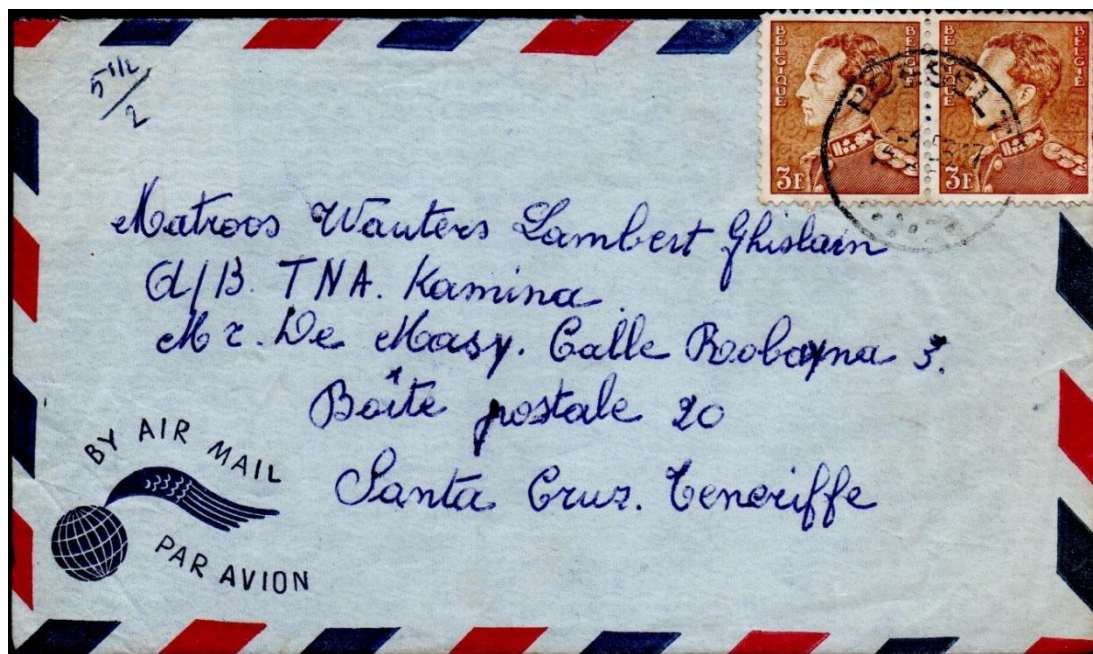 5 1/2
2
BELGIQUE BELGIË BELGIQUE BELGIË
3F 3F
Matroos Wauters Lambert Ghislain
a/B. TNA. Kamina
Mr. De Masy. Calle Robayna 3.
Boîte postale 20
Santa Cruz. Teneriffe
BY AIR MAIL
PAR AVION